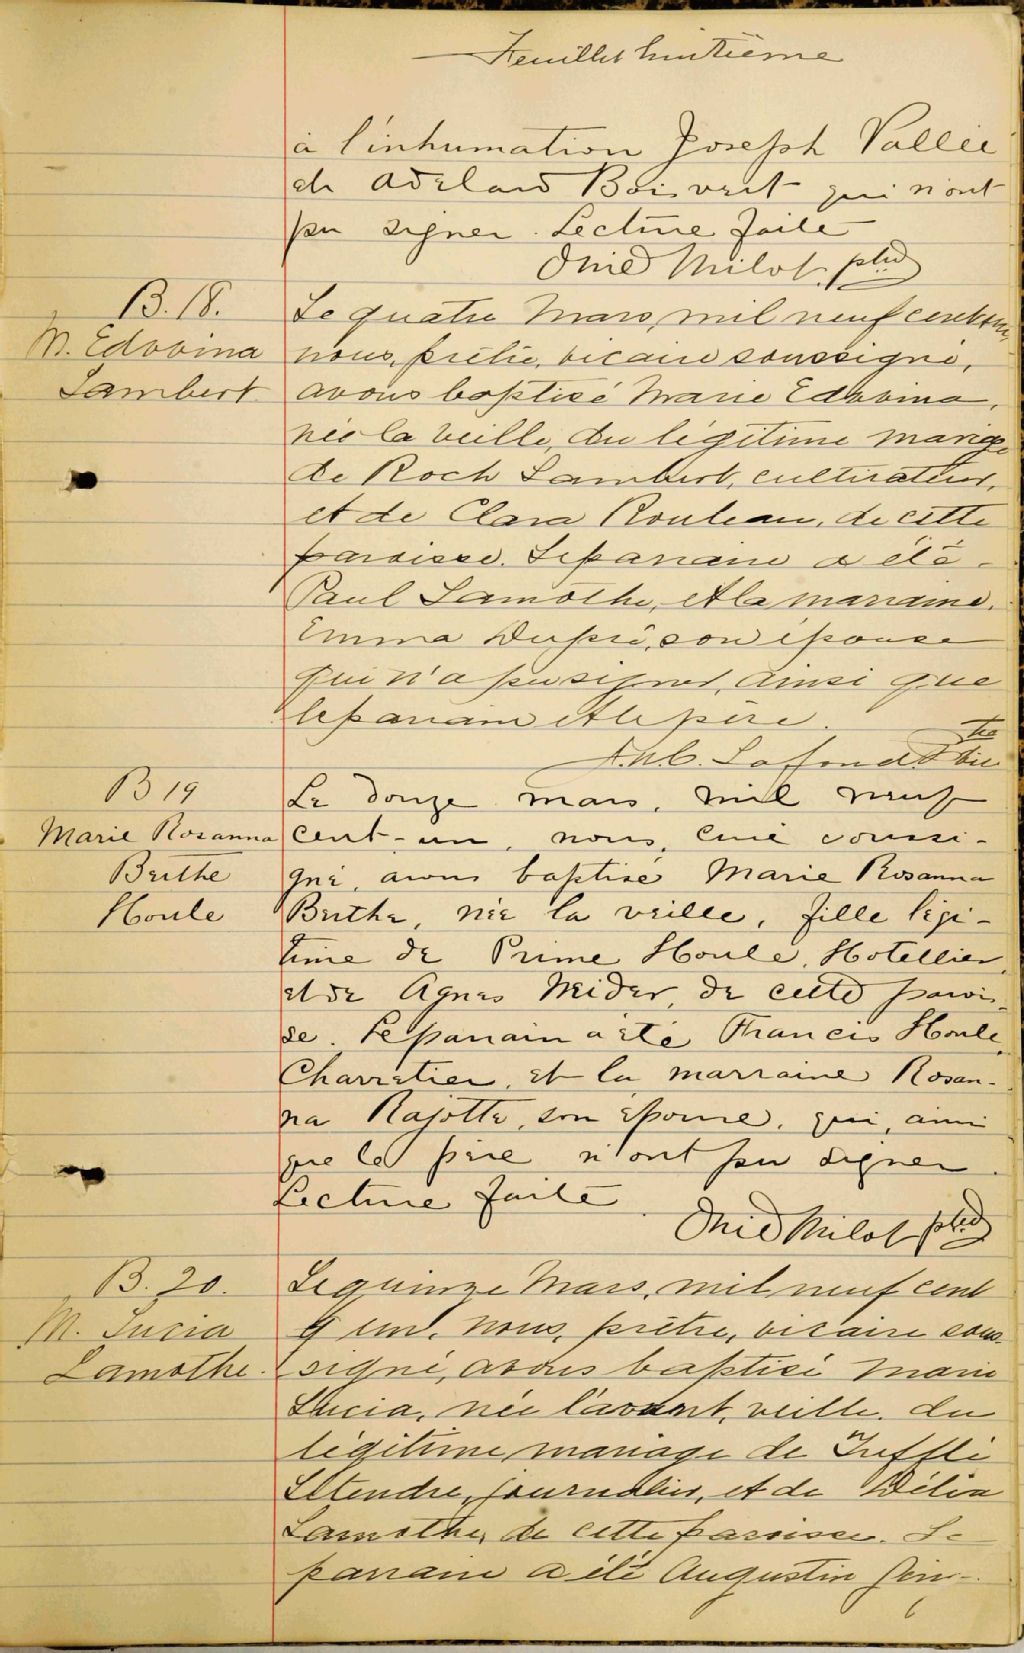 Feuillet huitième
à l'inhumation Joseph Vallée
et Adelard Boisvert qui n'ont
pu signer. Lecture faite
Onied Milot, ptre
B. 18.
M. Edwina
Lambert
Le quatre Mars, mil neuf cent un,
nous, prêtre, vicaire soussigné,
avons baptisé Marie Edwina,
née la veille, du légitime mariage
de Roch Lambert, cultivateur,
et de Clara Rouleau, de cette
paroisse. Le parrain a été
Paul Lamothe, et la marraine,
Emma Dupré, son épouse
qui n'a pu signer, ainsi que
le parrain et le père.
Lafond, ptre vic
B 19
Marie Rosanna
Berthe
Houle
Le douze mars, mil neuf
cent-un, nous, curé soussi-
gné, avons baptisé Marie Rosanna
Berthe, née la veille, fille légi-
time de Prime Houle, Hotellier,
et de Agnes Neider, de cette parois-
se. Le parrain a été Francis Houle,
Charretier, et la marraine Rosan-
na Rajotte, son épouse, qui, ainsi
que le père n'ont pu signer.
Lecture faite.
Onied Milot ptre
B. 20.
M. Lucia
Lamothe.
Le quinze Mars, mil neuf cent
un, nous, prêtre, vicaire sous-
signé, avons baptisé Marie
Lucia, née l'avant, veille, du
légitime mariage de Trefflé
Letendre, journalier, et de Délia
Lamothe, de cette paroisse. Le
parrain a été Augustin